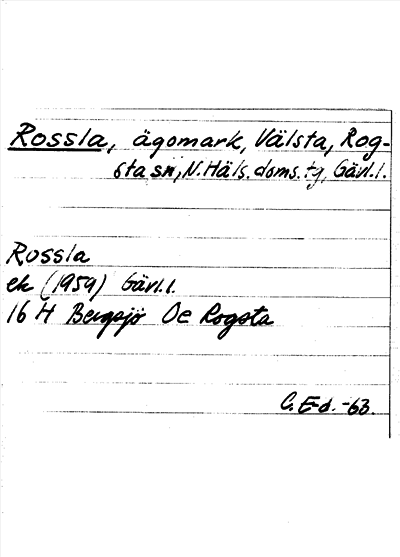 Rossla, ägomark, Välsta, Rog-
sta sn, N. Häls. doms. tg, Gävl. l.
Rossla
ek (1959) Gävl. l.
16 H Bergsjö Oe Rogsta
C. E-d. -63.